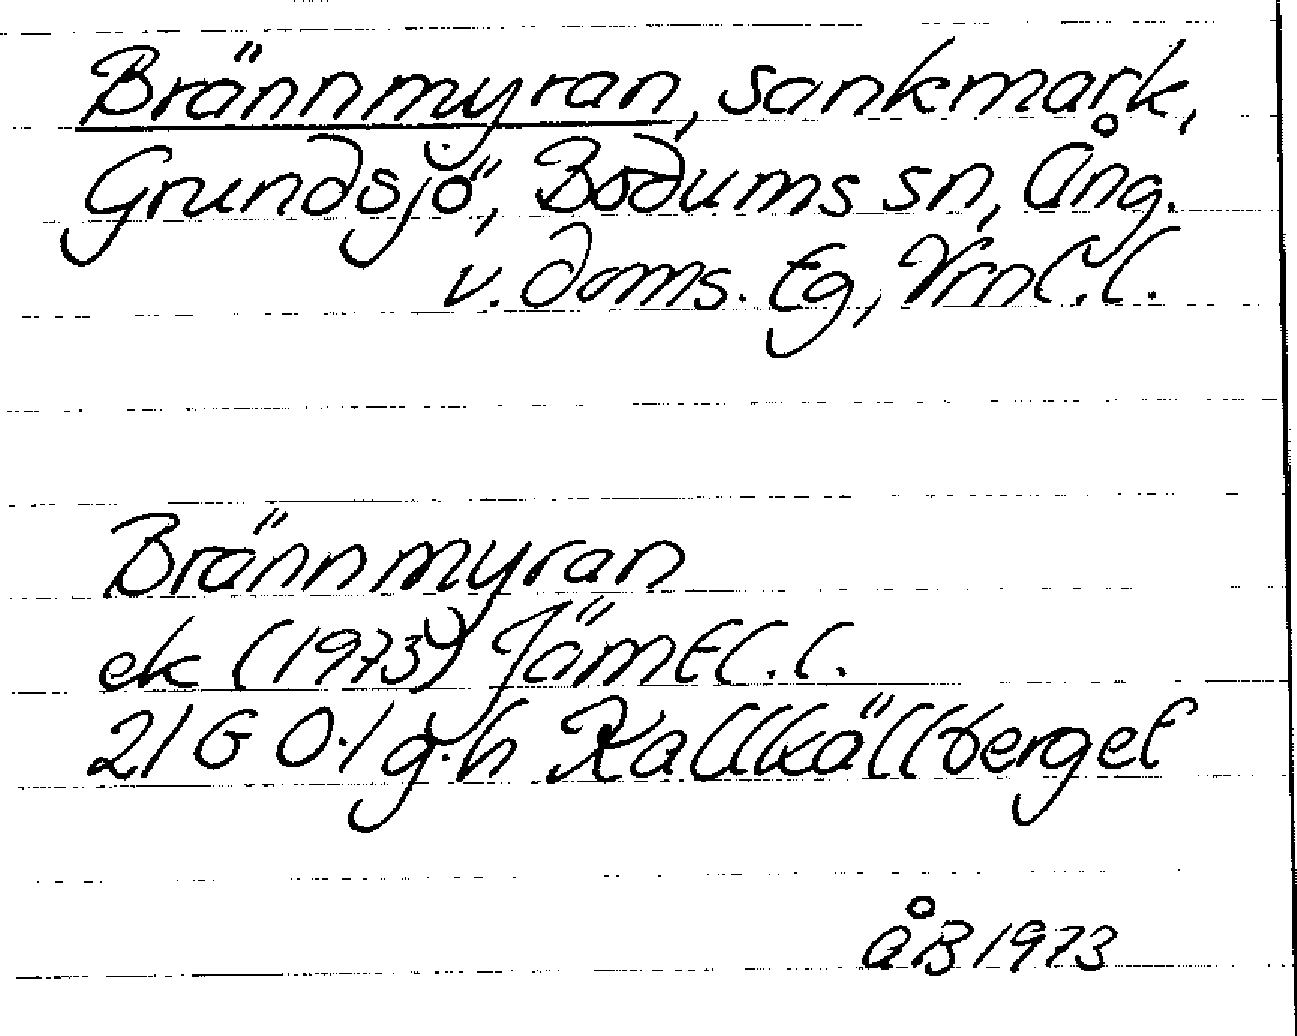 Brännmyran, sankmark,
Grundsjö, Bodums sn, Ång.
v. doms. Eg, Vrnl.l.
Brännmyran
ek (1973) Jämtl.l.
21 G 0·1 g·h Kallkällberget
ÅB 1973